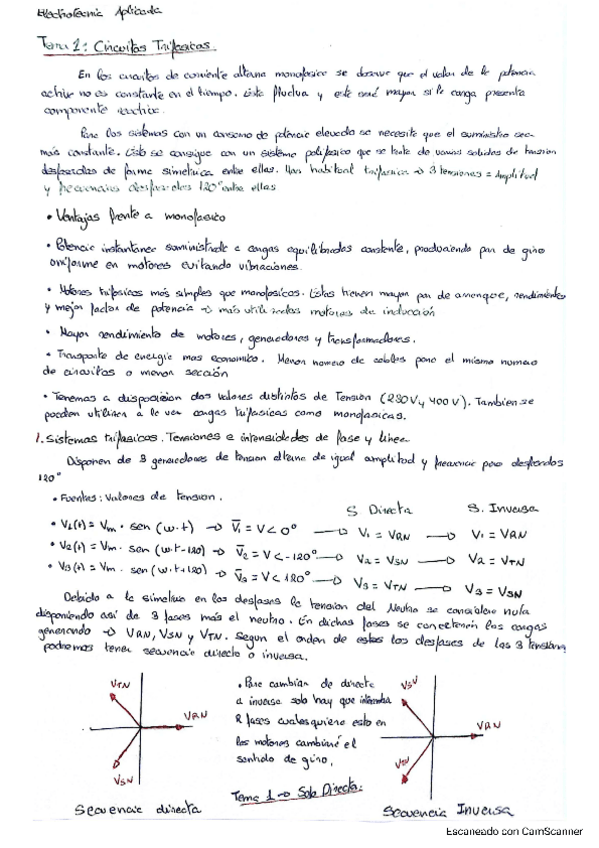 Electrotecnia Aplicada
Tema 1: Circuitos Trifasicos.
En los circuitos de corriente alterna monofasico se observa que el valor de la potencia
activa no es constante en el tiempo. Esta fluctua y este será mayor si la carga presenta
componente reactiva.
Para los sistemas con un consumo de potencia elevado se necesita que el suministro sea
más constante. Esto se consigue con un sistema polifasico que se trata de varias salidas de tension
desfasadas de forma simetrica entre ellas. Uso habitual trifasico → 3 tensiones = Amplitud
y frecuencia desfasadas 120° entre ellas
• Ventajas frente a monofasico
• Potencia instantanea suministrada a cargas equilibradas constante, produciendo par de giro
uniforme en motores evitando vibraciones.
• Motores trifasicos más simples que monofasicos. Estas tienen mayor par de arranque, rendimiento
y mejor factor de potencia → más utilizadas motores de inducción
• Mayor rendimiento de motores, generadores y transformadores.
• Transporte de energia mas economico. Menor numero de cables para el mismo numero
de circuitos o menor sección
• Tenemos a disposicion dos valores distintos de Tension (230V y 400V). Tambien se
pueden utilizar a la vez cargas trifasicas como monofasicas.
1. Sistemas trifasicos. Tensiones e intensidades de fase y linea
Disponen de 3 generadores de tension alterna de igual amplitud y frecuencia pero desfasados
120°
• Fuentes: Valores de tension.
S Directa S. Inversa
• V1(t) = Vm · sen (w·t) → V̄1 = V<0° → V1 = VRN → V1 = VRN
• V2(t) = Vm · sen (w·t-120) → V̄2 = V<-120° → V2 = VSN → V2 = VTN
• V3(t) = Vm · sen (w·t+120) → V̄3 = V<120° → V3 = VTN → V3 = VSN
Debido a la simetria en los desfases la tension del Neutro se considera nula
disponiendo asi de 3 fases más el neutro. En dichas fases se conectarán las cargas
generando → VRN, VSN y VTN. Segun el orden de estas los desfases de las 3 tensiones
podremos tener secuencia directa o inversa.
VTN
VRN
VSN
Secuencia directa
• Para cambiar de directa
a inversa solo hay que intercambiar
2 fases cualesquiera esto en
los motores cambiará el
sentido de giro.
Tema 1 → Solo Directa.
VSN
VRN
VTN
Secuencia Inversa
Escaneado con CamScanner